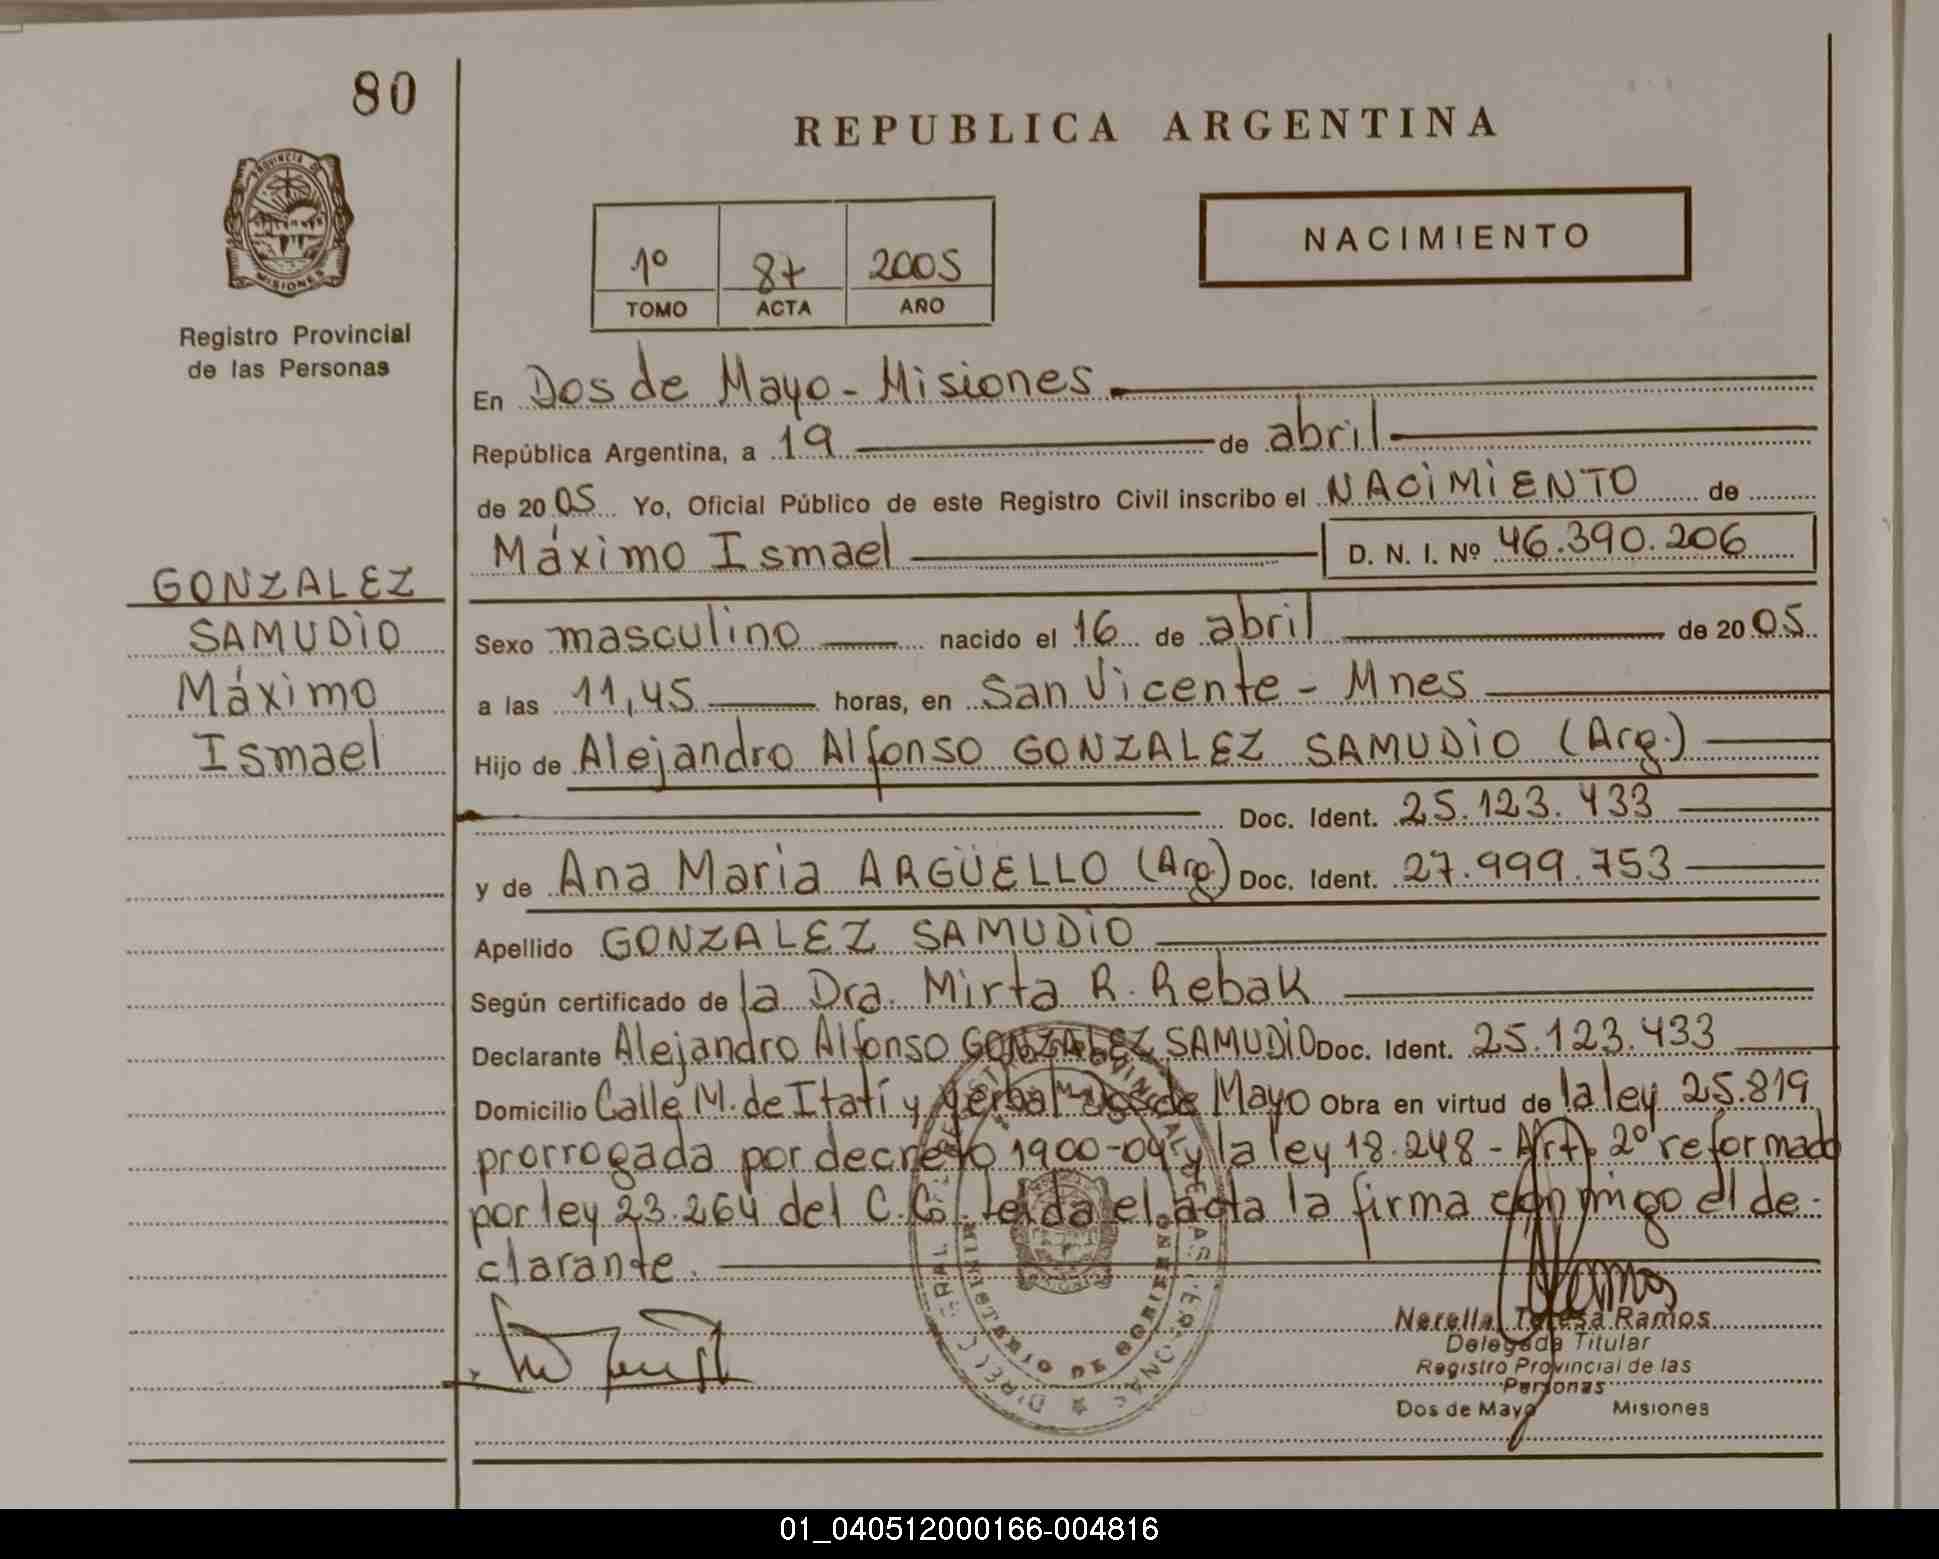 80
REPUBLICA ARGENTINA
PROVINCIA DE
MISIONES
Registro Provincial
de las Personas
NACIMIENTO
1º 87 2005
TOMO ACTA AÑO
En Dos de Mayo - Misiones
República Argentina, a 19 de abril
de 2005 Yo, Oficial Público de este Registro Civil inscribo el NACIMIENTO de
Máximo Ismael D. N. I. Nº 46.390.206
GONZALEZ
SAMUDIO
Máximo
Ismael
Sexo masculino nacido el 16 de abril de 2005
a las 11,45 horas, en San Vicente - Mnes
Hijo de Alejandro Alfonso GONZALEZ SAMUDIO (Arg.)
Doc. Ident. 25.123.433
y de Ana Maria ARGÜELLO (Arg) Doc. Ident. 27.999.753
Apellido GONZALEZ SAMUDIO
Según certificado de la Dra. Mirta R. Rebak
Declarante Alejandro Alfonso GONZALEZ SAMUDIO Doc. Ident. 25.123.433
Domicilio Calle M. de Itatí y Yerbal Dos de Mayo Obra en virtud de la ley 25.819
prorrogada por decreto 1900-04 y la ley 18.248 - Art. 2º reformado
por ley 23.264 del C.C. leída el acta la firma conmigo el de-
clarante.
Ramos
Nerella Teresa Ramos
Delegada Titular
Registro Provincial de las
Personas
Dos de Mayo Misiones
MINISTERIO DE GOBIERNO
01_040512000166-004816